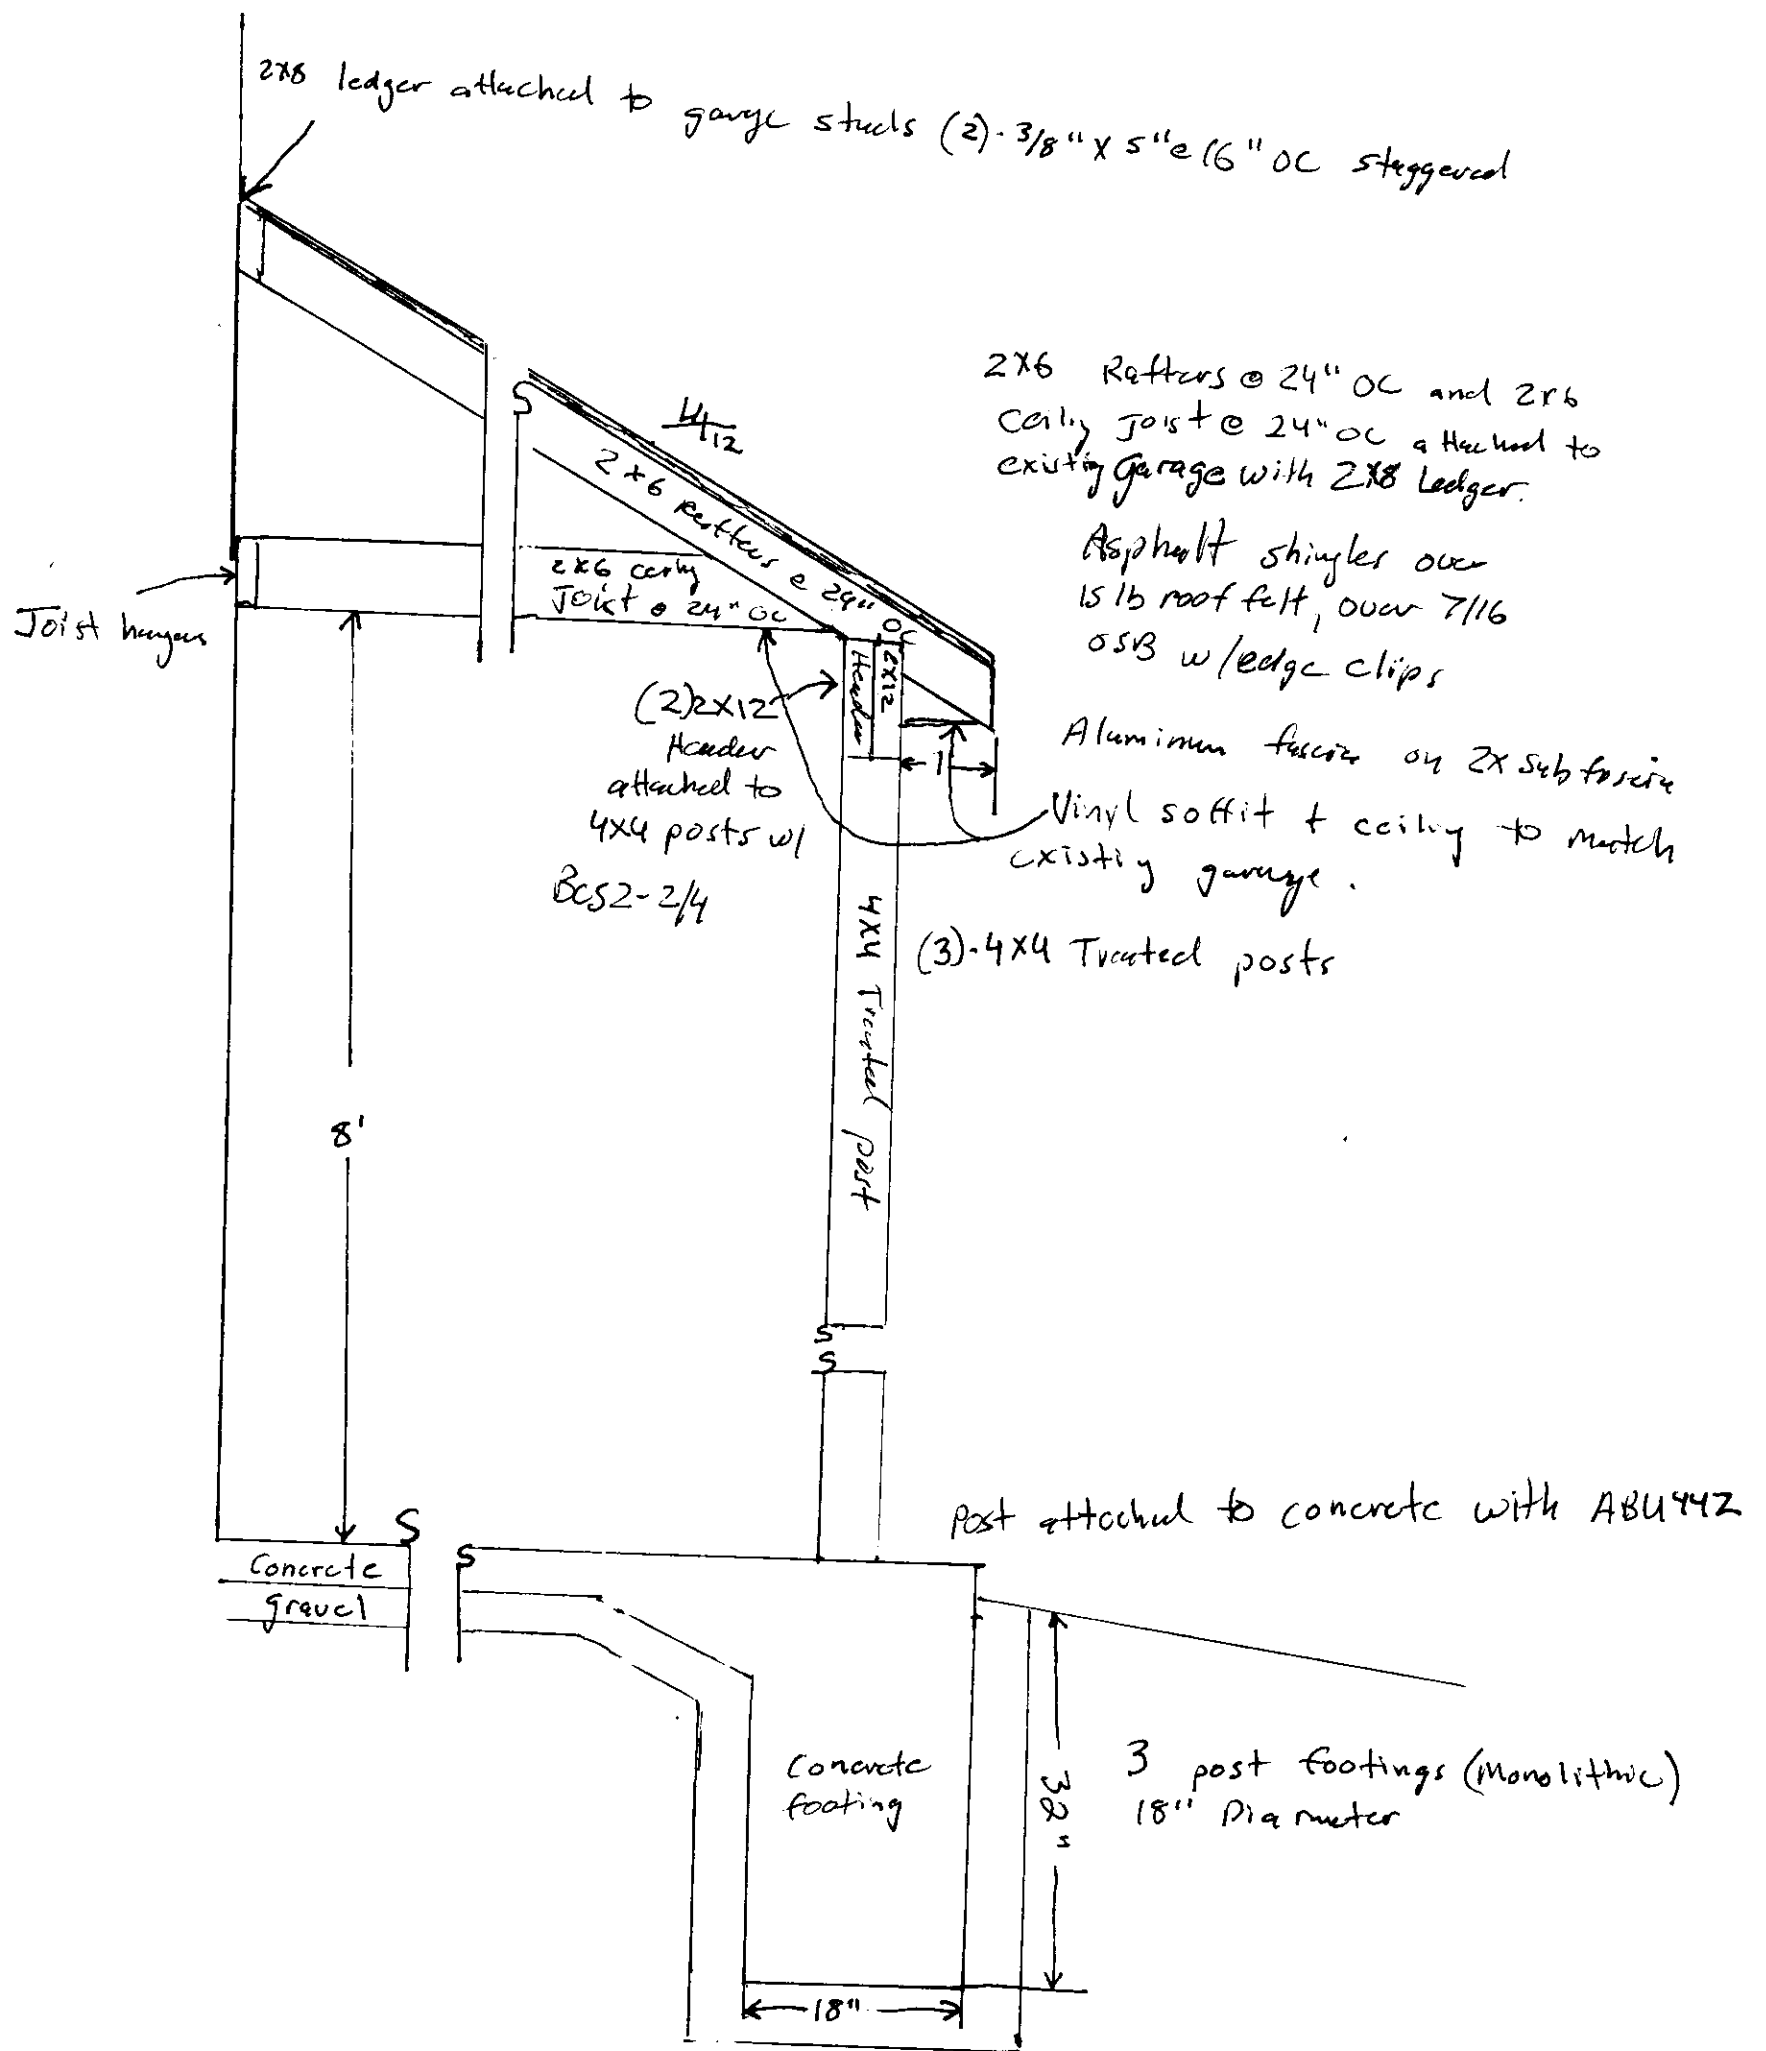 2x8 ledger attached to garage studs (2)-3/8" x 5" @ 16" OC staggered
4/12
2x6 Rafters @ 24" OC and 2x6
Ceiling Joist @ 24" OC attached to
existing Garage with 2x8 Ledger.
2x6 Rafters @ 24" OC
Asphalt shingles over
15 lb roof felt, over 7/16
OSB w/edge clips
2x6 ceiling
Joist @ 24" OC
Joist hangers
(2)2x12
Header
attached to
4x4 posts w/
BCS2-2/4
2x12
Header
1
Aluminum fascia on 2x subfascia
Vinyl soffit + ceiling to match
existing garage.
(3)-4x4 Treated posts
4x4 Treated post
8'
S
S
S
Post attached to concrete with ABU44Z
S
S
Concrete
gravel
Concrete
footing
32"
3 post footings (Monolithic)
18" Diameter
18"